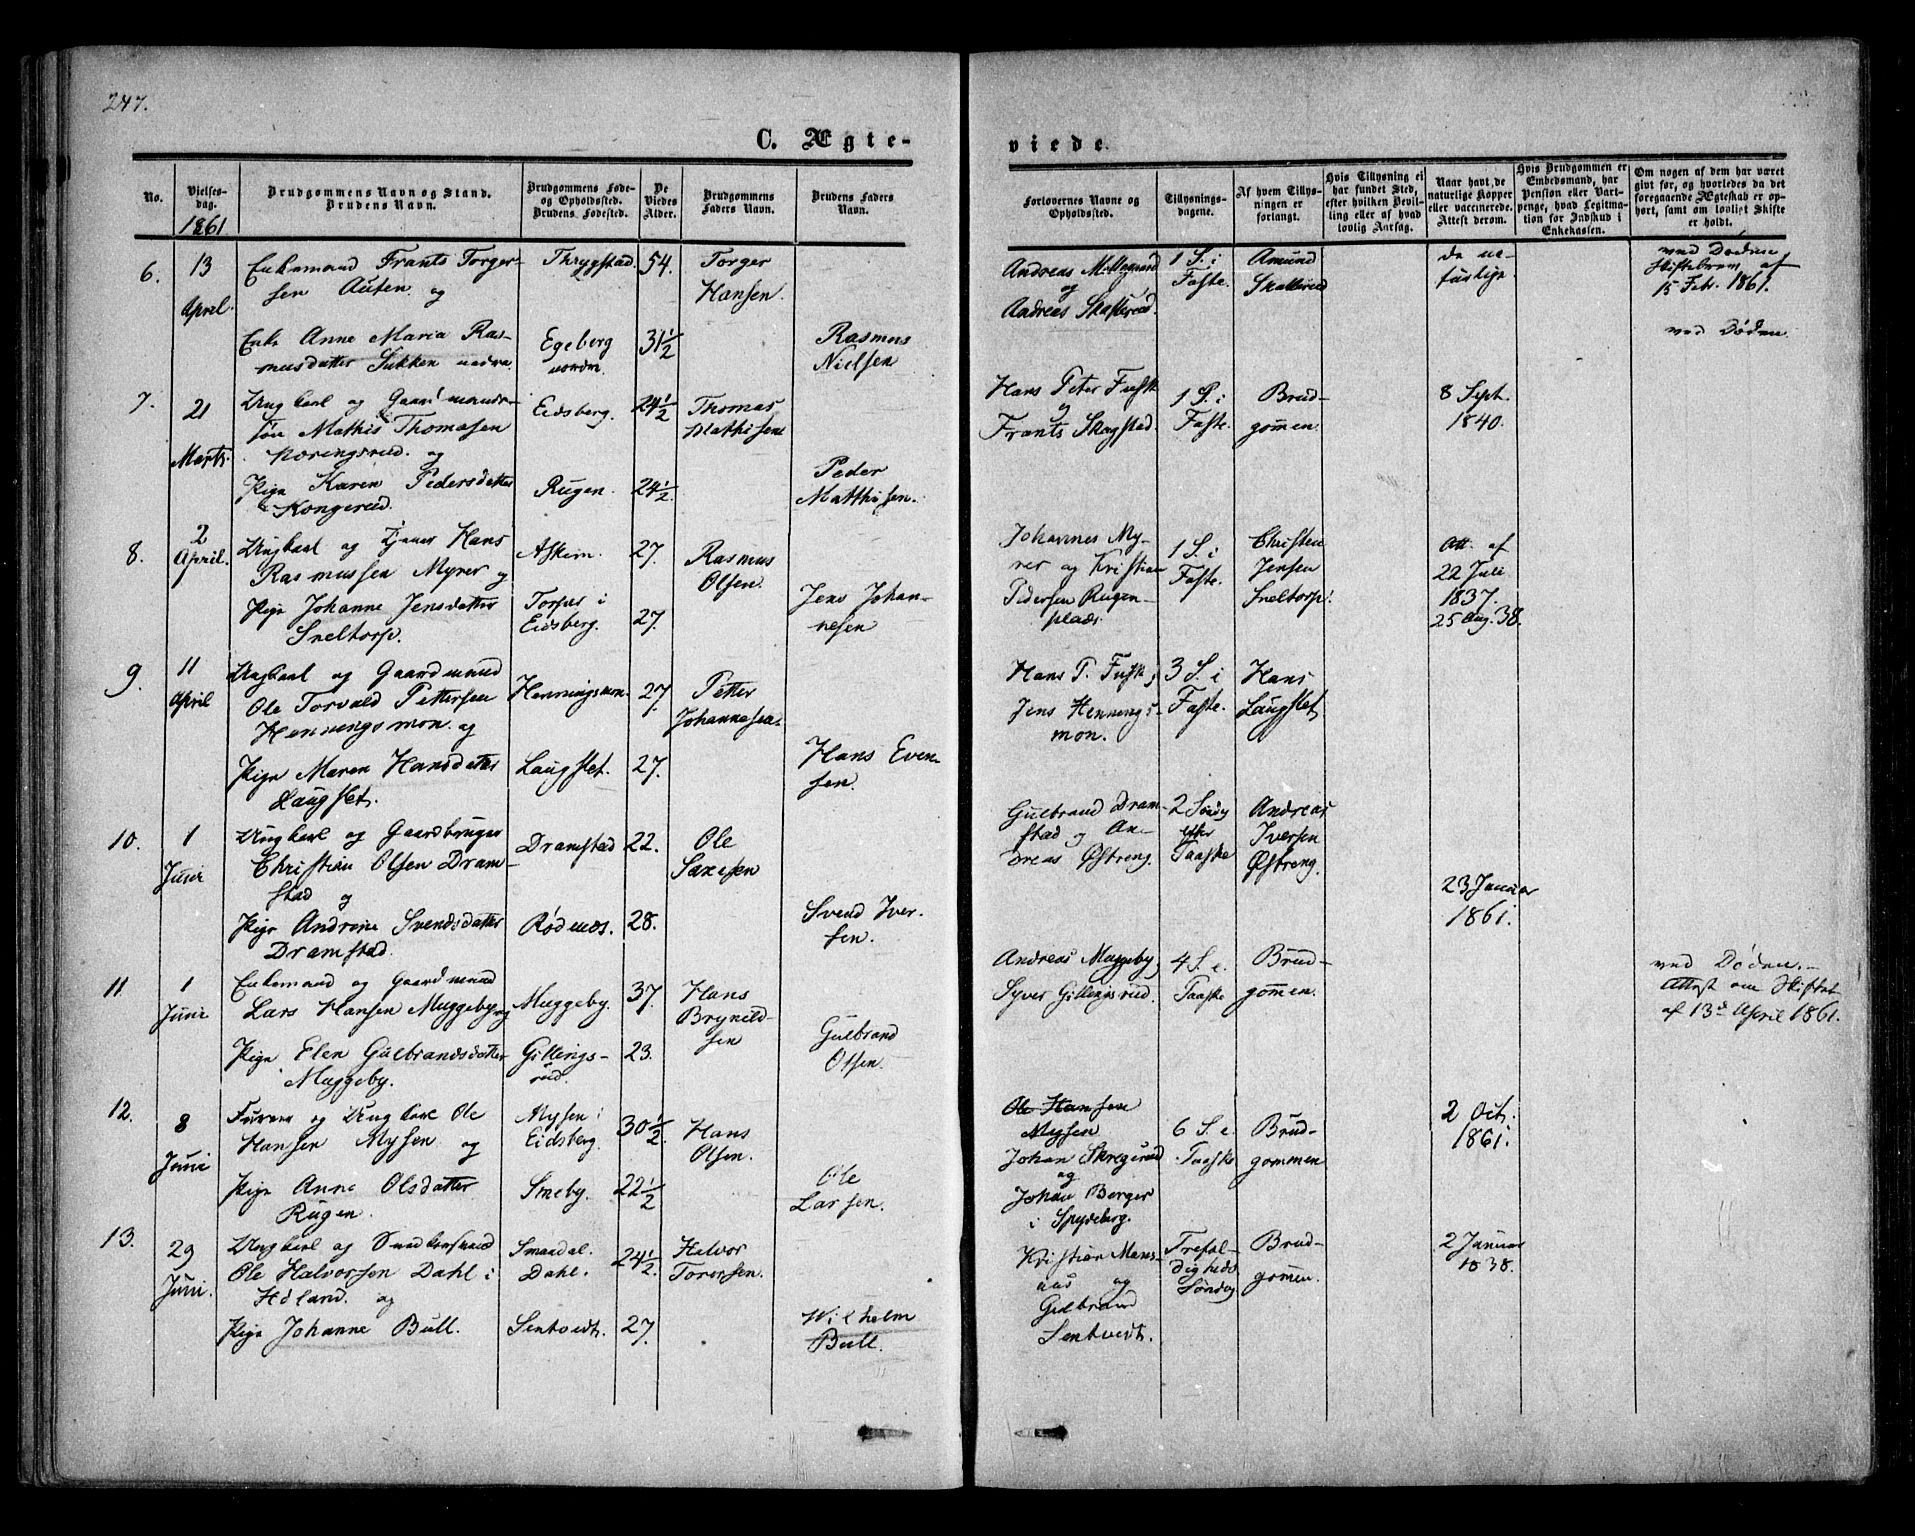 247.
C. Ægteviede.
No.
Vielsesdag.
1861
Brudgommens Navn og Stand.
Brudens Navn.
Brudgommens Føde-
og Opholdssted.
Brudens Fødested.
De
Viedes
Alder.
Brudgommens
Faders Navn.
Brudens Faders
Navn.
Forlovernes Navne og
Opholdssted.
Tillysnings-
dagene.
Af hvem Tillys-
ningen er
forlangt.
Hvis Tillysning ei
har fundet Sted,
efter hvilken Bevil-
ling eller af hvad
lovlig Aarsag.
Naar havt de
naturlige Kopper
eller vaccinerede.
Attest derom.
Hvis Brudgommen er
Embedsmand, har
Pension eller Vart-
penge, hvad Legitima-
tion for Indskud i
Enkekassen.
Om nogen af dem har været
givt før, og hvorledes da det
foregaaende Ægteskab er op-
hørt, samt om lovligt Skifte
er holdt.
6.
13
April.
Enkemand Frants Torger-
sen Auten og
Thrygstad
54.
Torger
Hansen.
Andreas
og
Andreas Skallerud.
1 S. i
Faste.
Amund
Skallerud
de na-
turlige.
ved Døden
Skiftebrev af
15 Febr. 1861.
Enke Anne Maria Ras-
musdatter
Egeberg
nordre.
31½
Rasmus
Nielsen
ved Døden.
7.
21
Marts.
Ungkarl og Gaardmands-
søn Mathis Thomasen
og
Eidsberg.
24½
Thomas
Mathisen
Hans Peter Fusk
og
Frants Skagstad.
1 S. i
Faste.
Brud-
gommen.
8 Sept.
1840.
Pige Karen Pedersdatter
Kongerud.
Rugen.
24½
Peder
Matthisen.
8.
2
April.
Ungkarl og Tjener Hans
Rasmussen Myrer og
Askim.
27.
Rasmus
Olsen.
Johannes My-
rer og Kristian
Pedersen Rugen-
plads.
1 S. i
Faste.
Christen
Jensen
Sneltorp.
Att. af
22 Juli
1837.
25 Aug. 38.
Pige Johanne Jensdatter
Sneltorp.
Torper i
Eidsberg.
27.
Jens Johan-
nesen
9.
11
April
Ungkarl og Gaardmand
Ole Torvald Pettersen
Henningsmon. og
Henningsmon.
27.
Petter
Johannesen.
Hans P. Fusk,
Jens Hennings-
mon.
3 S. i
Faste.
Hans
Laugslet
Pige Maren Hansdatter
Laugslet.
Laugslet.
27.
Hans Even-
sen
10.
1
Juni
Ungkarl og Gaardbruger
Christian Olsen Dram-
stad og
Dramstad
22.
Ole
Saxesen
Gulbrand Dram-
stad og An-
dreas Østreng.
2 Søndg
efter
Paaske
Andreas
Iversen
Østreng.
23 Januar
1861.
Pige Andrine Svendsdatter
Dramstad.
Rødenæs.
28.
Svend Iver-
sen.
11.
1
Juni
Enkemand og Gaardmand
Lars Hansen Muggeby og
Muggeby.
37.
Hans
Brynild-
sen
Andreas Muggeby,
Syver Gillingsrud.
4 S. e.
Paaske
Brud-
gommen.
ved Døden.—
Attest om Skiftet
af 13de April 1861.
Pige Elen Gulbrandsdatter
Muggeby.
Gillings-
rud.
23.
Gulbrand
Olsen.
12.
8
Juni
og Ungkarl Ole
Hansen Mysen og
Mysen i
Eidsberg.
30½
Hans
Olsen.
Ole Hansen
Mysen
Johan Skregerud
og
Johan Berger
i Spydeberg.
6 S. e.
Paaske
Brud-
gommen
2 Oct.
1861.
Pige Anne Olsdatter
Rugen.
Smeby.
22½
Ole
Larsen.
13.
29
Juni.
Ungkarl og
Ole Halvorsen Dahl i
Høland. og
Smaadal.
Dahl.
24½
Halvor
Torersen.
Kristian Mons-
rud og
Gulbrand
Sentvedt.
Trefol-
digheds
Søndag
Brud-
gommen.
2 Januar
1838.
Pige Johanne Bull.
Sentvedt.
27.
Wilhelm
Bull.